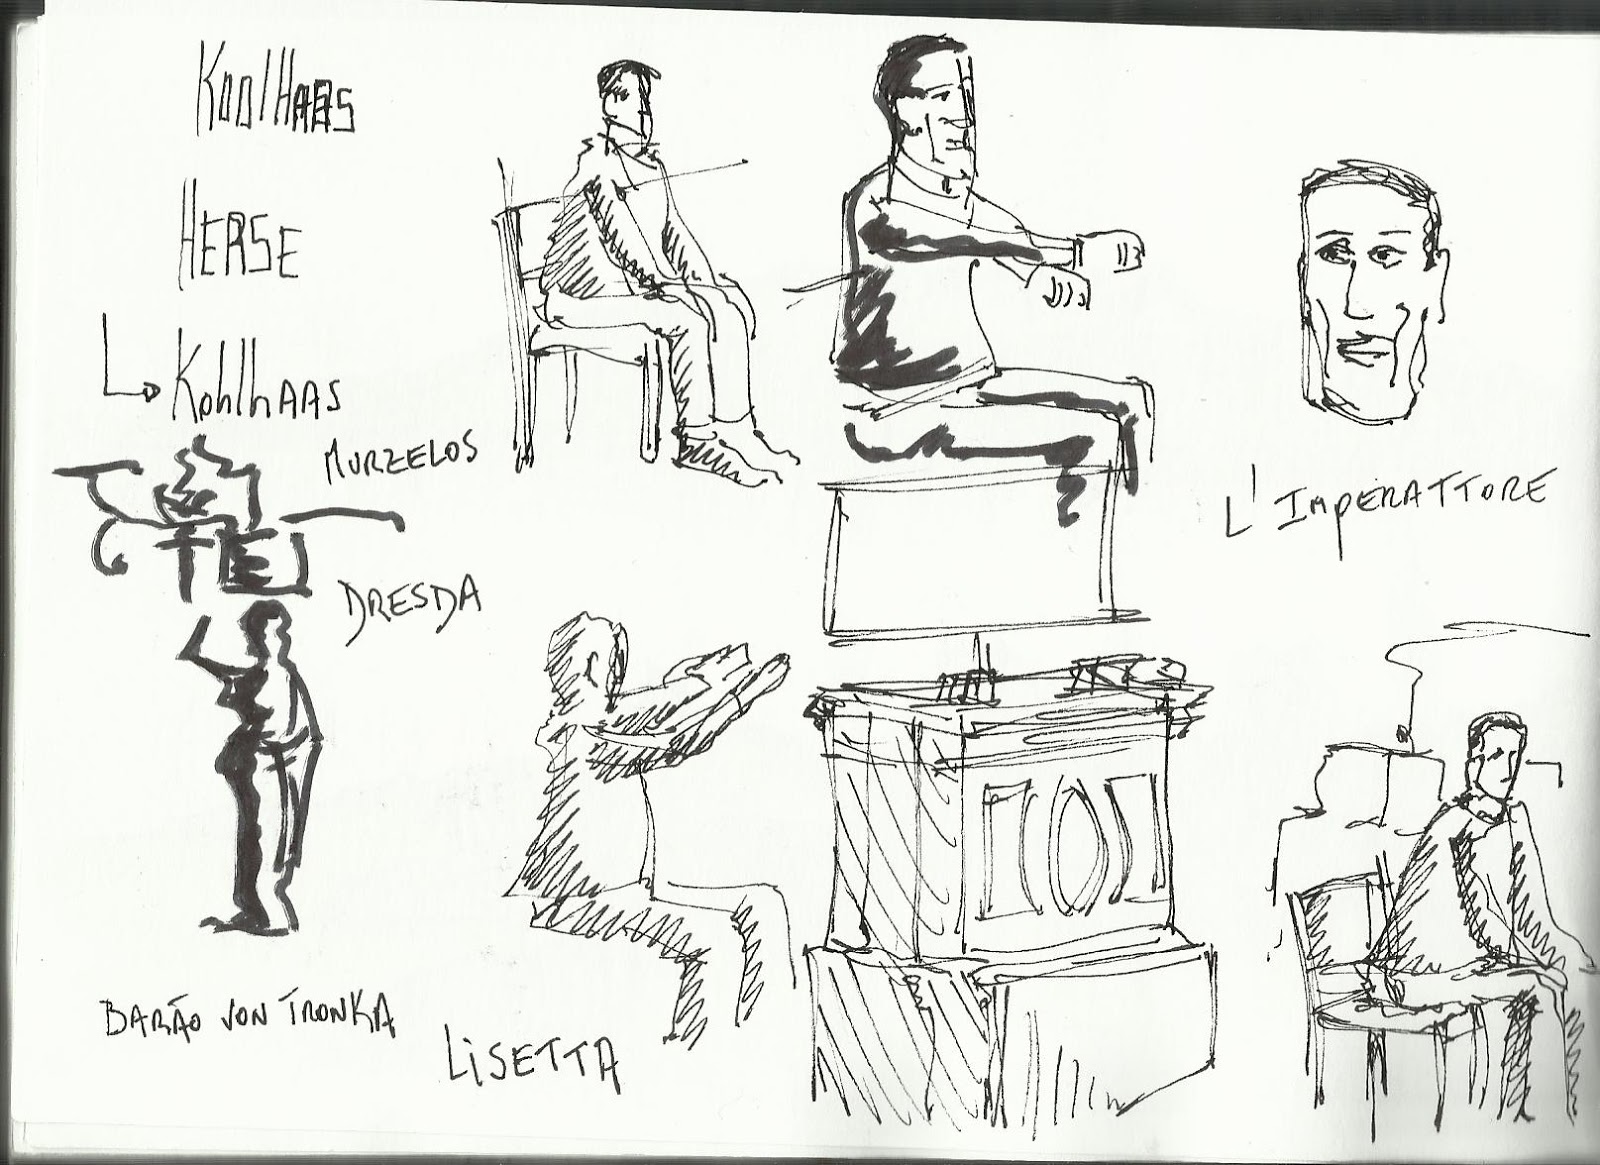 KoolHAAS
HERSE
KohlhAAS
MURZELOS
DRESDA
BARÃO VON TRONKA
LISETTA
L'IMPERATTORE